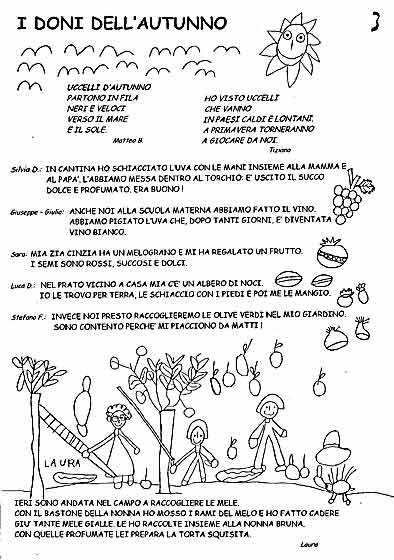 I DONI DELL'AUTUNNO
3
UCCELLI D'AUTUNNO
PARTONO IN FILA
NERI E VELOCI
VERSO IL MARE
E IL SOLE.
Matteo B.
HO VISTO UCCELLI
CHE VANNO
IN PAESI CALDI E LONTANI.
A PRIMAVERA TORNERANNO
A GIOCARE DA NOI.
Tiziana
Silvia D.: IN CANTINA HO SCHIACCIATO L'UVA CON LE MANI INSIEME ALLA MAMMA E
AL PAPA'. L'ABBIAMO MESSA DENTRO AL TORCHIO: E' USCITO IL SUCCO
DOLCE E PROFUMATO. ERA BUONO !
Giuseppe - Giulia: ANCHE NOI ALLA SCUOLA MATERNA ABBIAMO FATTO IL VINO.
ABBIAMO PIGIATO L'UVA CHE, DOPO TANTI GIORNI, E' DIVENTATA
VINO BIANCO.
Sara: MIA ZIA CINZIA HA UN MELOGRANO E MI HA REGALATO UN FRUTTO.
I SEMI SONO ROSSI, SUCCOSI E DOLCI.
Luca D.: NEL PRATO VICINO A CASA MIA C'E' UN ALBERO DI NOCI.
IO LE TROVO PER TERRA, LE SCHIACCIO CON I PIEDI E POI ME LE MANGIO.
Stefano F.: INVECE NOI PRESTO RACCOGLIEREMO LE OLIVE VERDI NEL MIO GIARDINO.
SONO CONTENTO PERCHE' MI PIACCIONO DA MATTI !
LAURA
IERI SONO ANDATA NEL CAMPO A RACCOGLIERE LE MELE.
CON IL BASTONE DELLA NONNA HO MOSSO I RAMI DEL MELO E HO FATTO CADERE
GIU' TANTE MELE GIALLE. LE HO RACCOLTE INSIEME ALLA NONNA BRUNA.
CON QUELLE PROFUMATE LEI PREPARA LA TORTA SQUISITA.
Laura